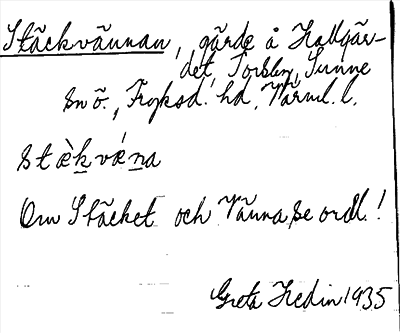 Stäckvännan, gärde å Hallgär-
det, Torsby, Sunne
sn ö., Fryksd. hd, Värml. l.
stæ̀kvǽna
Om Stäcket och Vänna, se ordl.!
Greta Hedin 1935